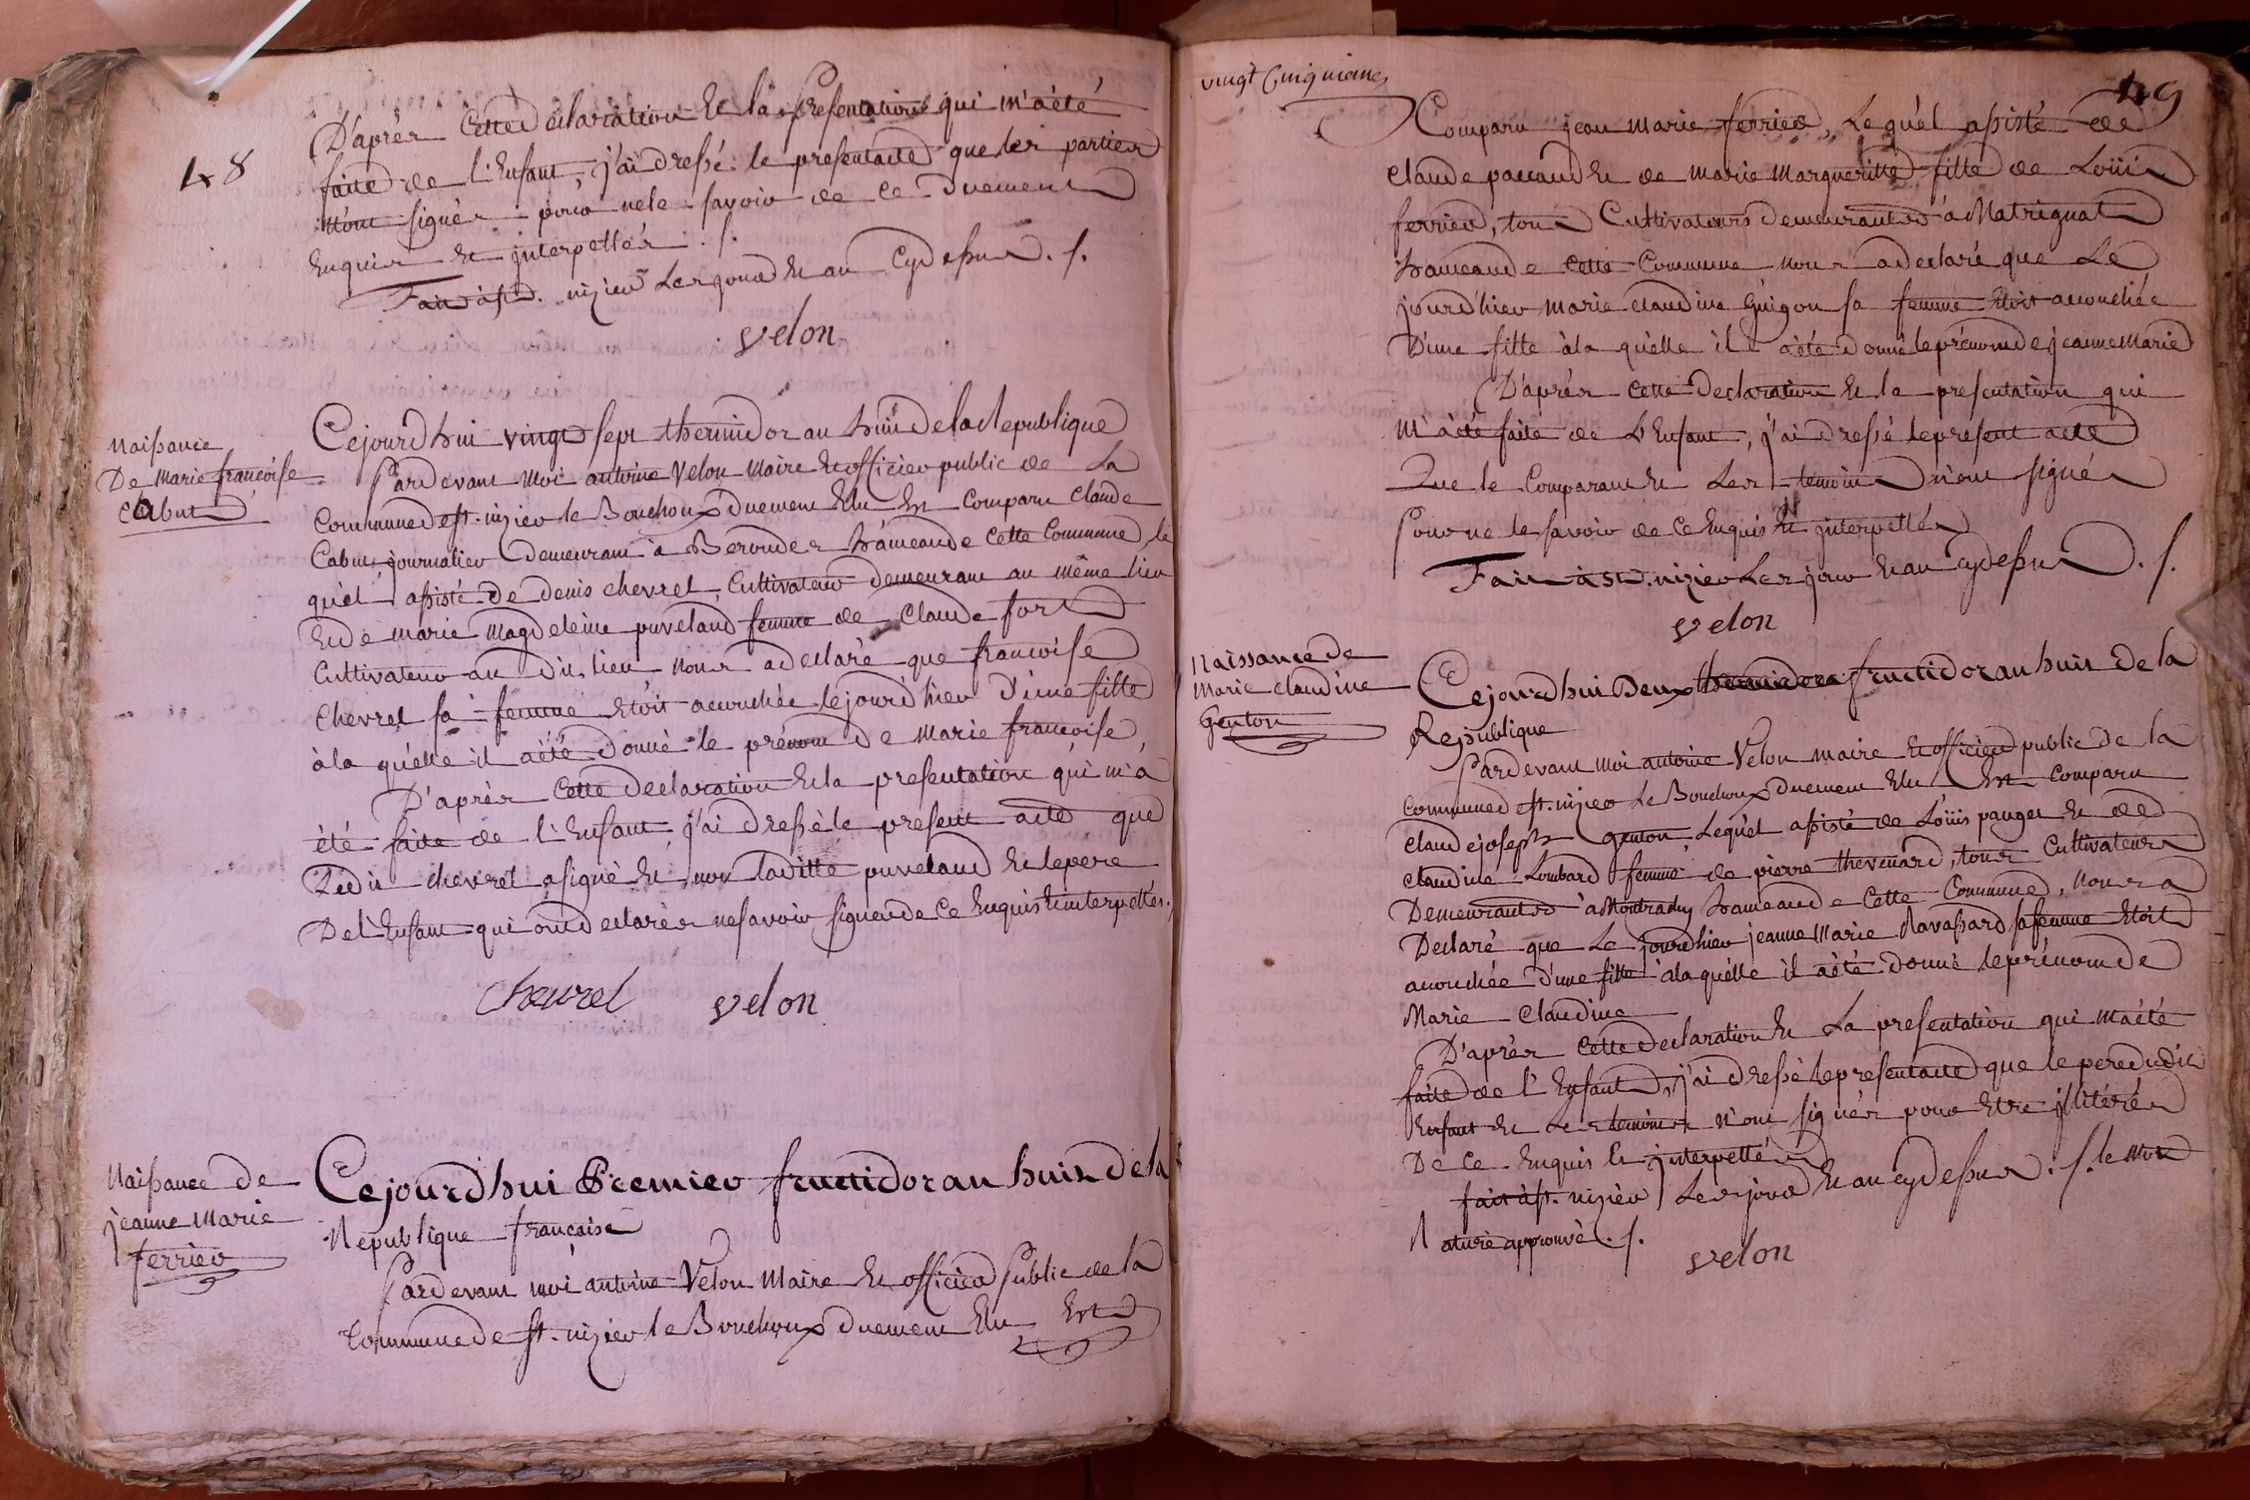 48
D'aprés Cette déclaration Et la présentation qui m'aété
faite de l'Enfant, j'ai dressé le present acte que les parties
n'ont signés pour ne le savoir de ce Duement
Enquis Et jnterpellés ./.
Fait à st. nizier Les jour Et an Cydessus ./.
velon
naissance
De Marie francoise
Cabut
Cejourdhui vingt sept thermidor an huit de la Republique
Pardevant Moi antoine Velon Maire Et officier public de La
Commune de st. nizier le Bouchoux Duement Elu Est Comparu Claude
Cabut journalier Demeurant à Beroudes hâmeau de Cette Commune, le
quél assisté De denis chevrel, Cultivateur Demeurant au même lieu
Et de marie Magdeleine puveland femme de Claude fort
Cultivateur au dit lieu nous a declaré que francoise
Chevrel sa femme Etoit accouchée lejourd'hier D'une fille
àla quélle il aété Donné le prénom De Marie francoise
D'aprés Cette Declaration Et la presentation qui m'a
été faite de l'Enfant j'ai dressé le present acte que
Ledit chevrel a signé Et non laditte puveland Et le pere
De l'Enfant qui ont declarés ne savoir signer de Ce Enquis Et interpellés.
Chevrel velon
Naissance De
jeanne Marie
ferrier
Cejourd'hui Premier fructidor an huit de la
Republique française
Pardevant moi antoine Velon Maire Et officier Public de la
Commune de st. nizier le Bouchoux Duement Elu Est
vingt Cinquieme
49
Comparu jean Marie ferrier, Le quél assisté de
Claude paccaud Et de Marie Margueritte fille de Loüis
ferrier, tous Cultivateurs Demeurants à Matrignat
hameau de Cette Commune nous a declaré que Le
jourd'hier Marie claudine Guigon sa femme Etoit accouchée
D'une fille àla quélle il a été donné le prénom de jeanne Marie
D'aprés Cette Declaration Et la presentation qui
M'àété faite de L'Enfant, j'ai dressé le present acte
Que le Comparant Et Les temoins n'ont signés
Pour ne le savoir de Ce Enquis Et jnterpellés
Fait à st. nizier Les jour Et an cydessus ./.
velon
Naissance de
Marie claudine
Genton
Cejourdhui Deux thermidor fructidor an huit de la
Republique
Pardevant Moi antoine Velon maire Et officier public de la
Commune de st. nizier Le Bouchoux Duement Elu Est Comparu
Claude joseph genton, Lequél assisté de Loüis pauget Et de
Claudine Lombard femme de pierre thevenard, tous Cultivateurs
Demeurants à Montradny hameau de Cette Commune, nous a
Declaré que Le jourdhier jeanne Marie Ravassard sa femme Etoit
accouchée D'une fille àla quélle il aété donné le prénom de
Marie Claudine
D'aprés Cette declaration Et La presentation qui m'aété
faite de l'Enfant, j'ai dressé le présent acte que le pere dudit
Enfant Et Les temoins n'ont signés pour Etre jllitérés
De Ce Enquis Et jnterpellés
fait à st. nizier Les jour Et an cydessus ./. le mot
Raturé approuvé ./.
velon